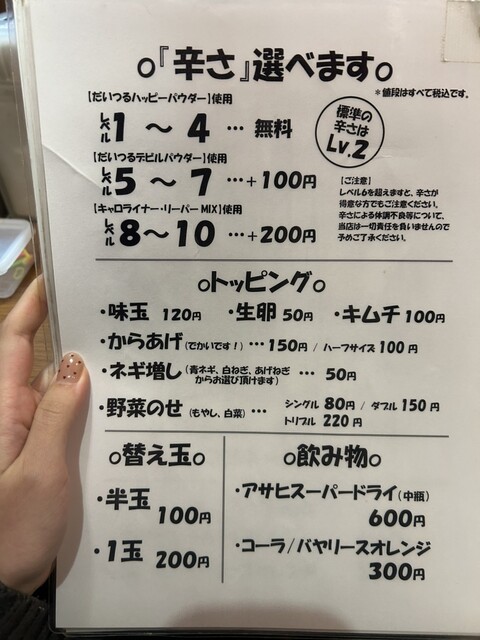 ○『辛さ』選べます○
*値段はすべて税込です。
【だいつるハッピーパウダー】使用
レベル1 ～ 4 … 無料
標準の
辛さは
Lv.2
【だいつるデビルパウダー】使用
レベル5 ～ 7 …+100円
【キャロライナー・リーパーMIX】使用
レベル8～10 …+200円
【ご注意】
レベル6を超えますと、辛さが
得意な方でもご注意ください。
辛さによる体調不良等について、
当店は一切責任を負いませんので
予めご了承ください。
○トッピング○
・味玉 120円 ・生卵 50円 ・キムチ 100円
・からあげ(でかいです!) …150円 / ハーフサイズ 100円
・ネギ増し(青ネギ、白ねぎ、あげねぎ
からお選び頂けます) … 50円
・野菜のせ(もやし、白菜) … シングル 80円 / ダブル 150円
トリプル 220円
○替え玉○
・半玉 100円
・1玉 200円
○飲み物○
・アサヒスーパードライ(中瓶)
600円
・コーラ/バヤリースオレンジ
300円